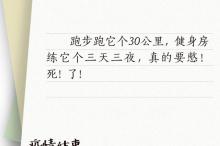 跑步跑它个30公里，健身房
练它个三天三夜，真的要憋！
死！了！
疫情结束